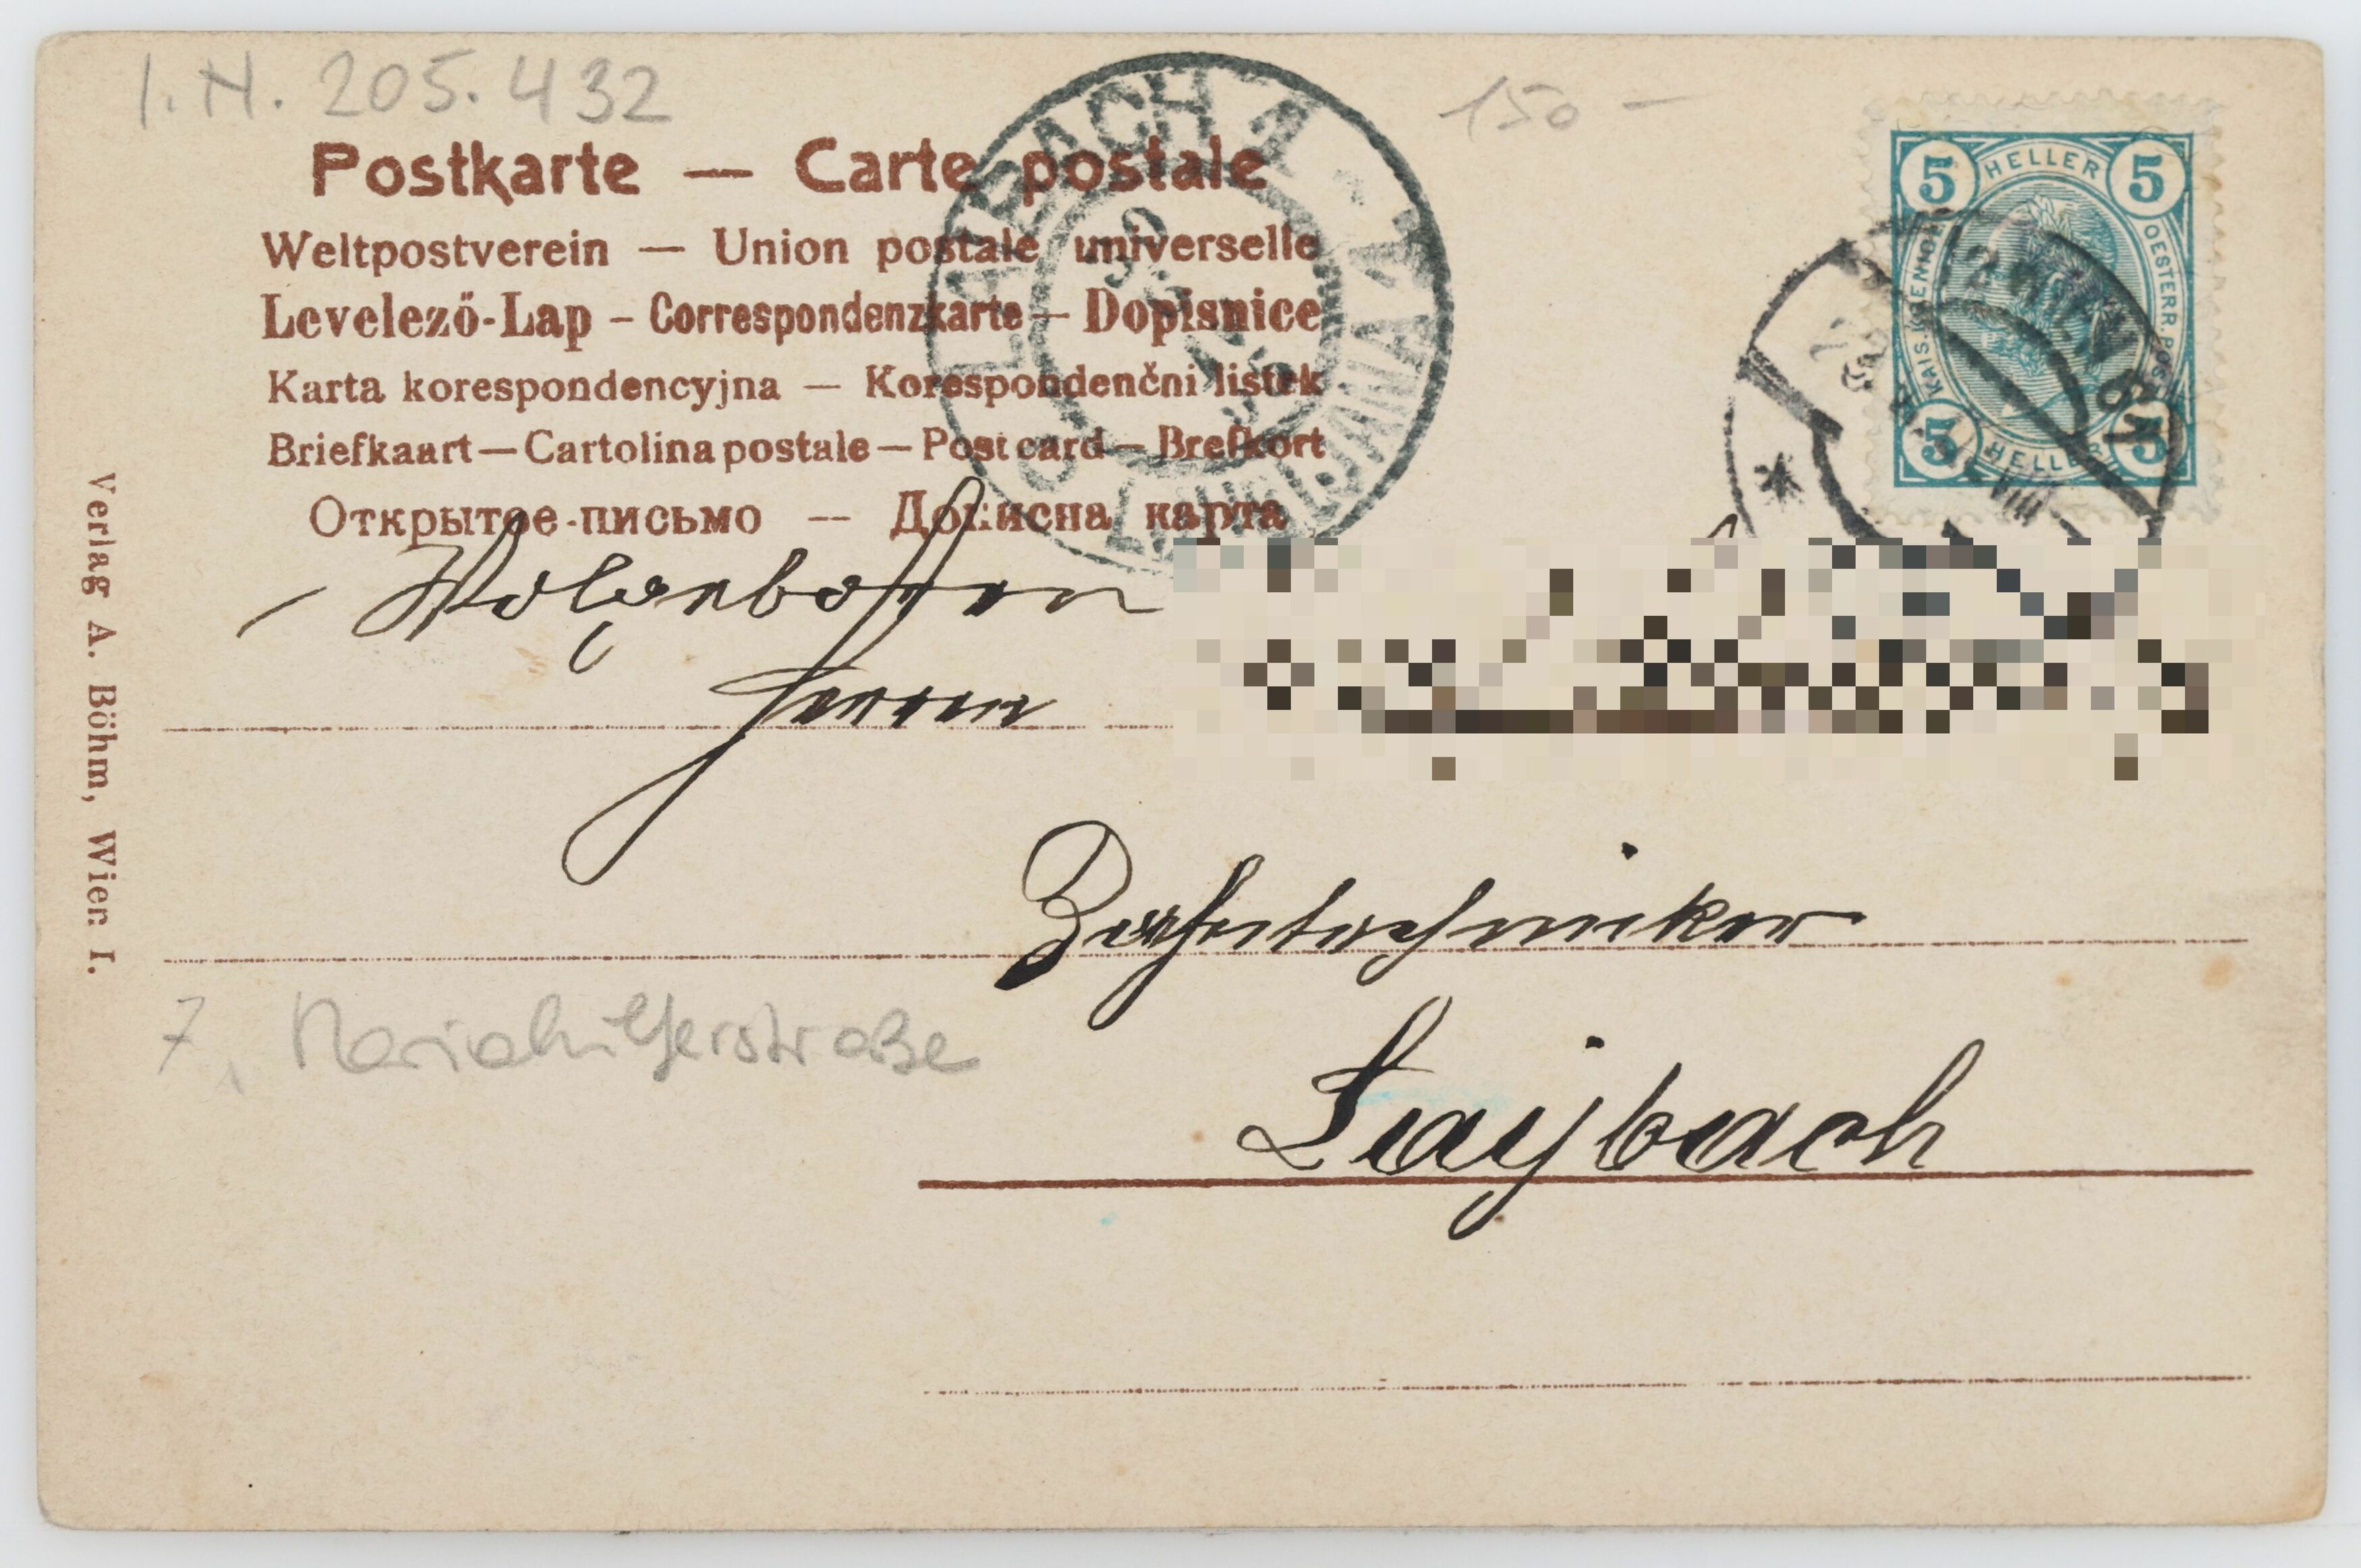 I.N. 205.432
150 –
Postkarte — Carte postale
Weltpostverein — Union postale universelle
Levelező-Lap – Correspondenzkarte – Dopisnice
Karta korespondencyjna — Korespondenčni listek
Briefkaart — Cartolina postale — Post card — Brefkort
Открытое письмо — Дописна карта
LAIBACH 1
LJUBLJANA 1
5 HELLER 5
KAIS. KOENIGL. OESTERR. POST
5 HELLER 5
WIEN
Wolgeboren
Herrn
Zahntechniker
Laybach
7, Mariahilferstraße
Verlag A. Böhm, Wien I.